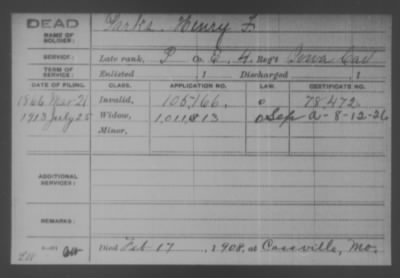 DEAD
NAME OF SOLDIER: Parks, Henry F.
SERVICE: Late rank, P Co. E, 4, Reg't Iowa Cav
TERM OF SERVICE: Enlisted 1 Discharged 1
DATE OF FILING. CLASS. APPLICATION NO. LAW. CERTIFICATE NO.
1866 Mar 21 Invalid, 105,166. o 78,472.
1913 July 25 Widow, 1,011,813 o Sep A-8-12-26
Minor,
ADDITIONAL SERVICES:
REMARKS:
Died Feb 17, 1908, at Cassville, Mo.